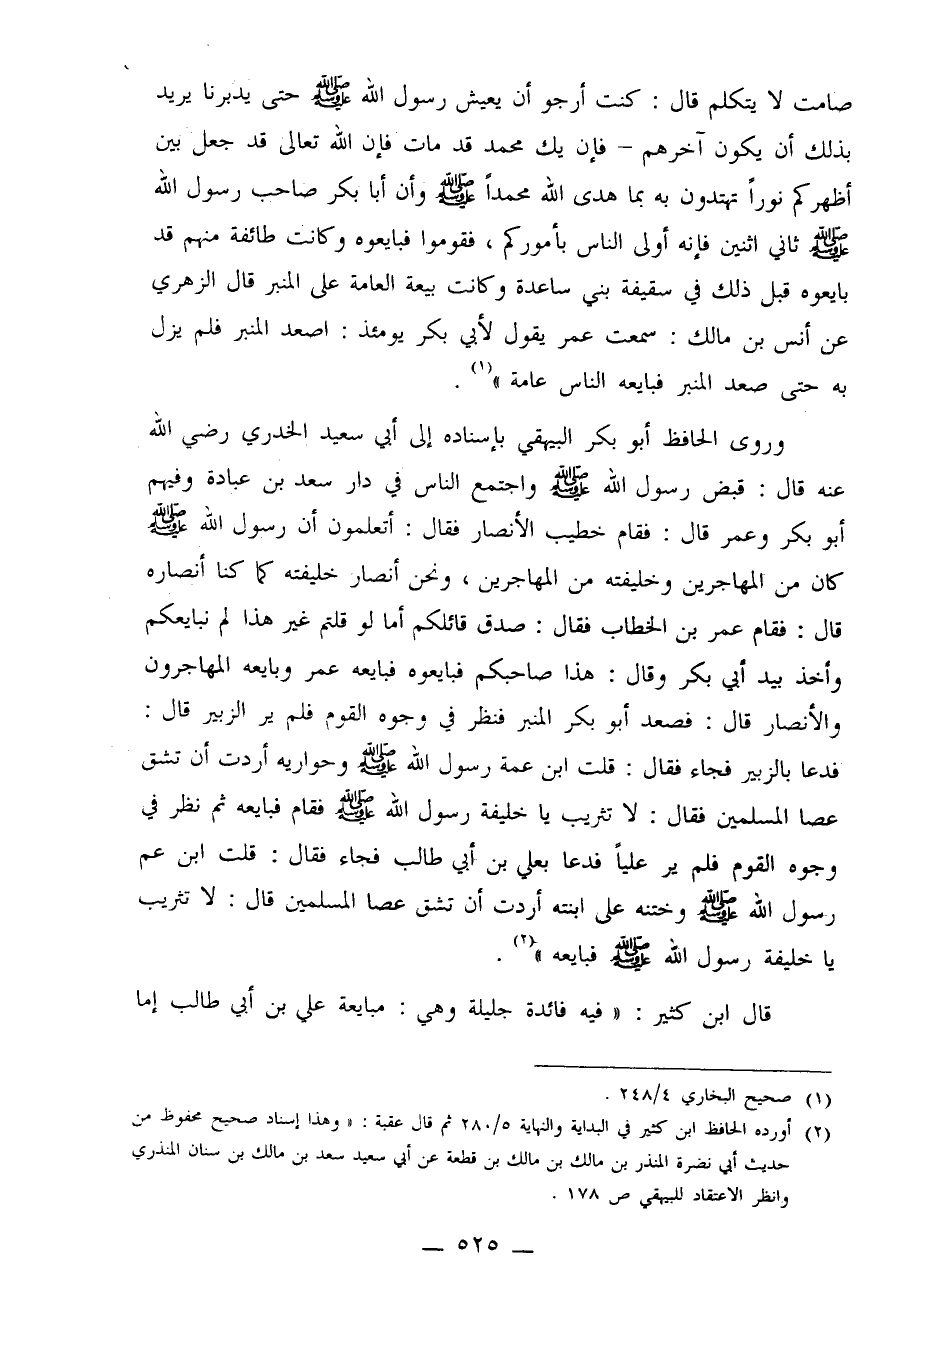 صامت لا يتكلم قال : كنت أرجو أن يعيش رسول الله ﷺ حتى يدبرنا يريد
بذلك أن يكون آخرهم – فإن يك محمد قد مات فإن الله تعالى قد جعل بين
أظهركم نوراً تهتدون به بما هدى الله محمداً ﷺ وأن أبا بكر صاحب رسول الله
ﷺ ثاني اثنين فإنه أولى الناس بأموركم ، فقوموا فبايعوه وكانت طائفة منهم قد
بايعوه قبل ذلك في سقيفة بني ساعدة وكانت بيعة العامة على المنبر قال الزهري
عن أنس بن مالك : سمعت عمر يقول لأبي بكر يومئذ : اصعد المنبر فلم يزل
به حتى صعد المنبر فبايعه الناس عامة »(١) .
وروى الحافظ أبو بكر البيهقي بإسناده إلى أبي سعيد الخدري رضي الله
عنه قال : قبض رسول الله ﷺ واجتمع الناس في دار سعد بن عبادة وفيهم
أبو بكر وعمر قال : فقام خطيب الأنصار فقال : أتعلمون أن رسول الله ﷺ
كان من المهاجرين وخليفته من المهاجرين ، ونحن أنصار خليفته كما كنا أنصاره
قال : فقام عمر بن الخطاب فقال : صدق قائلكم أما لو قلتم غير هذا لم نبايعكم
وأخذ بيد أبي بكر وقال : هذا صاحبكم فبايعوه فبايعه عمر وبايعه المهاجرون
والأنصار قال : فصعد أبو بكر المنبر فنظر في وجوه القوم فلم ير الزبير قال :
فدعا بالزبير فجاء فقال : قلت ابن عمة رسول الله ﷺ وحواريه أردت أن تشق
عصا المسلمين فقال : لا تثريب يا خليفة رسول الله ﷺ فقام فبايعه ثم نظر في
وجوه القوم فلم ير علياً فدعا بعلي بن أبي طالب فجاء فقال : قلت ابن عم
رسول الله ﷺ وختنه على ابنته أردت أن تشق عصا المسلمين قال : لا تثريب
يا خليفة رسول الله ﷺ فبايعه »(٢) .
قال ابن كثير : « فيه فائدة جليلة وهي : مبايعة علي بن أبي طالب إما
(١) صحيح البخاري ٢٤٨/٤ .
(٢) أورده الحافظ ابن كثير في البداية والنهاية ٢٨٠/٥ ثم قال عقبة : « وهذا إسناد صحيح محفوظ من
حديث أبي نضرة المنذر بن مالك بن مالك بن قطعة عن أبي سعيد سعد بن مالك بن سنان المنذري
وانظر الاعتقاد للبيهقي ص ١٧٨ .
— ٥٢٥ —